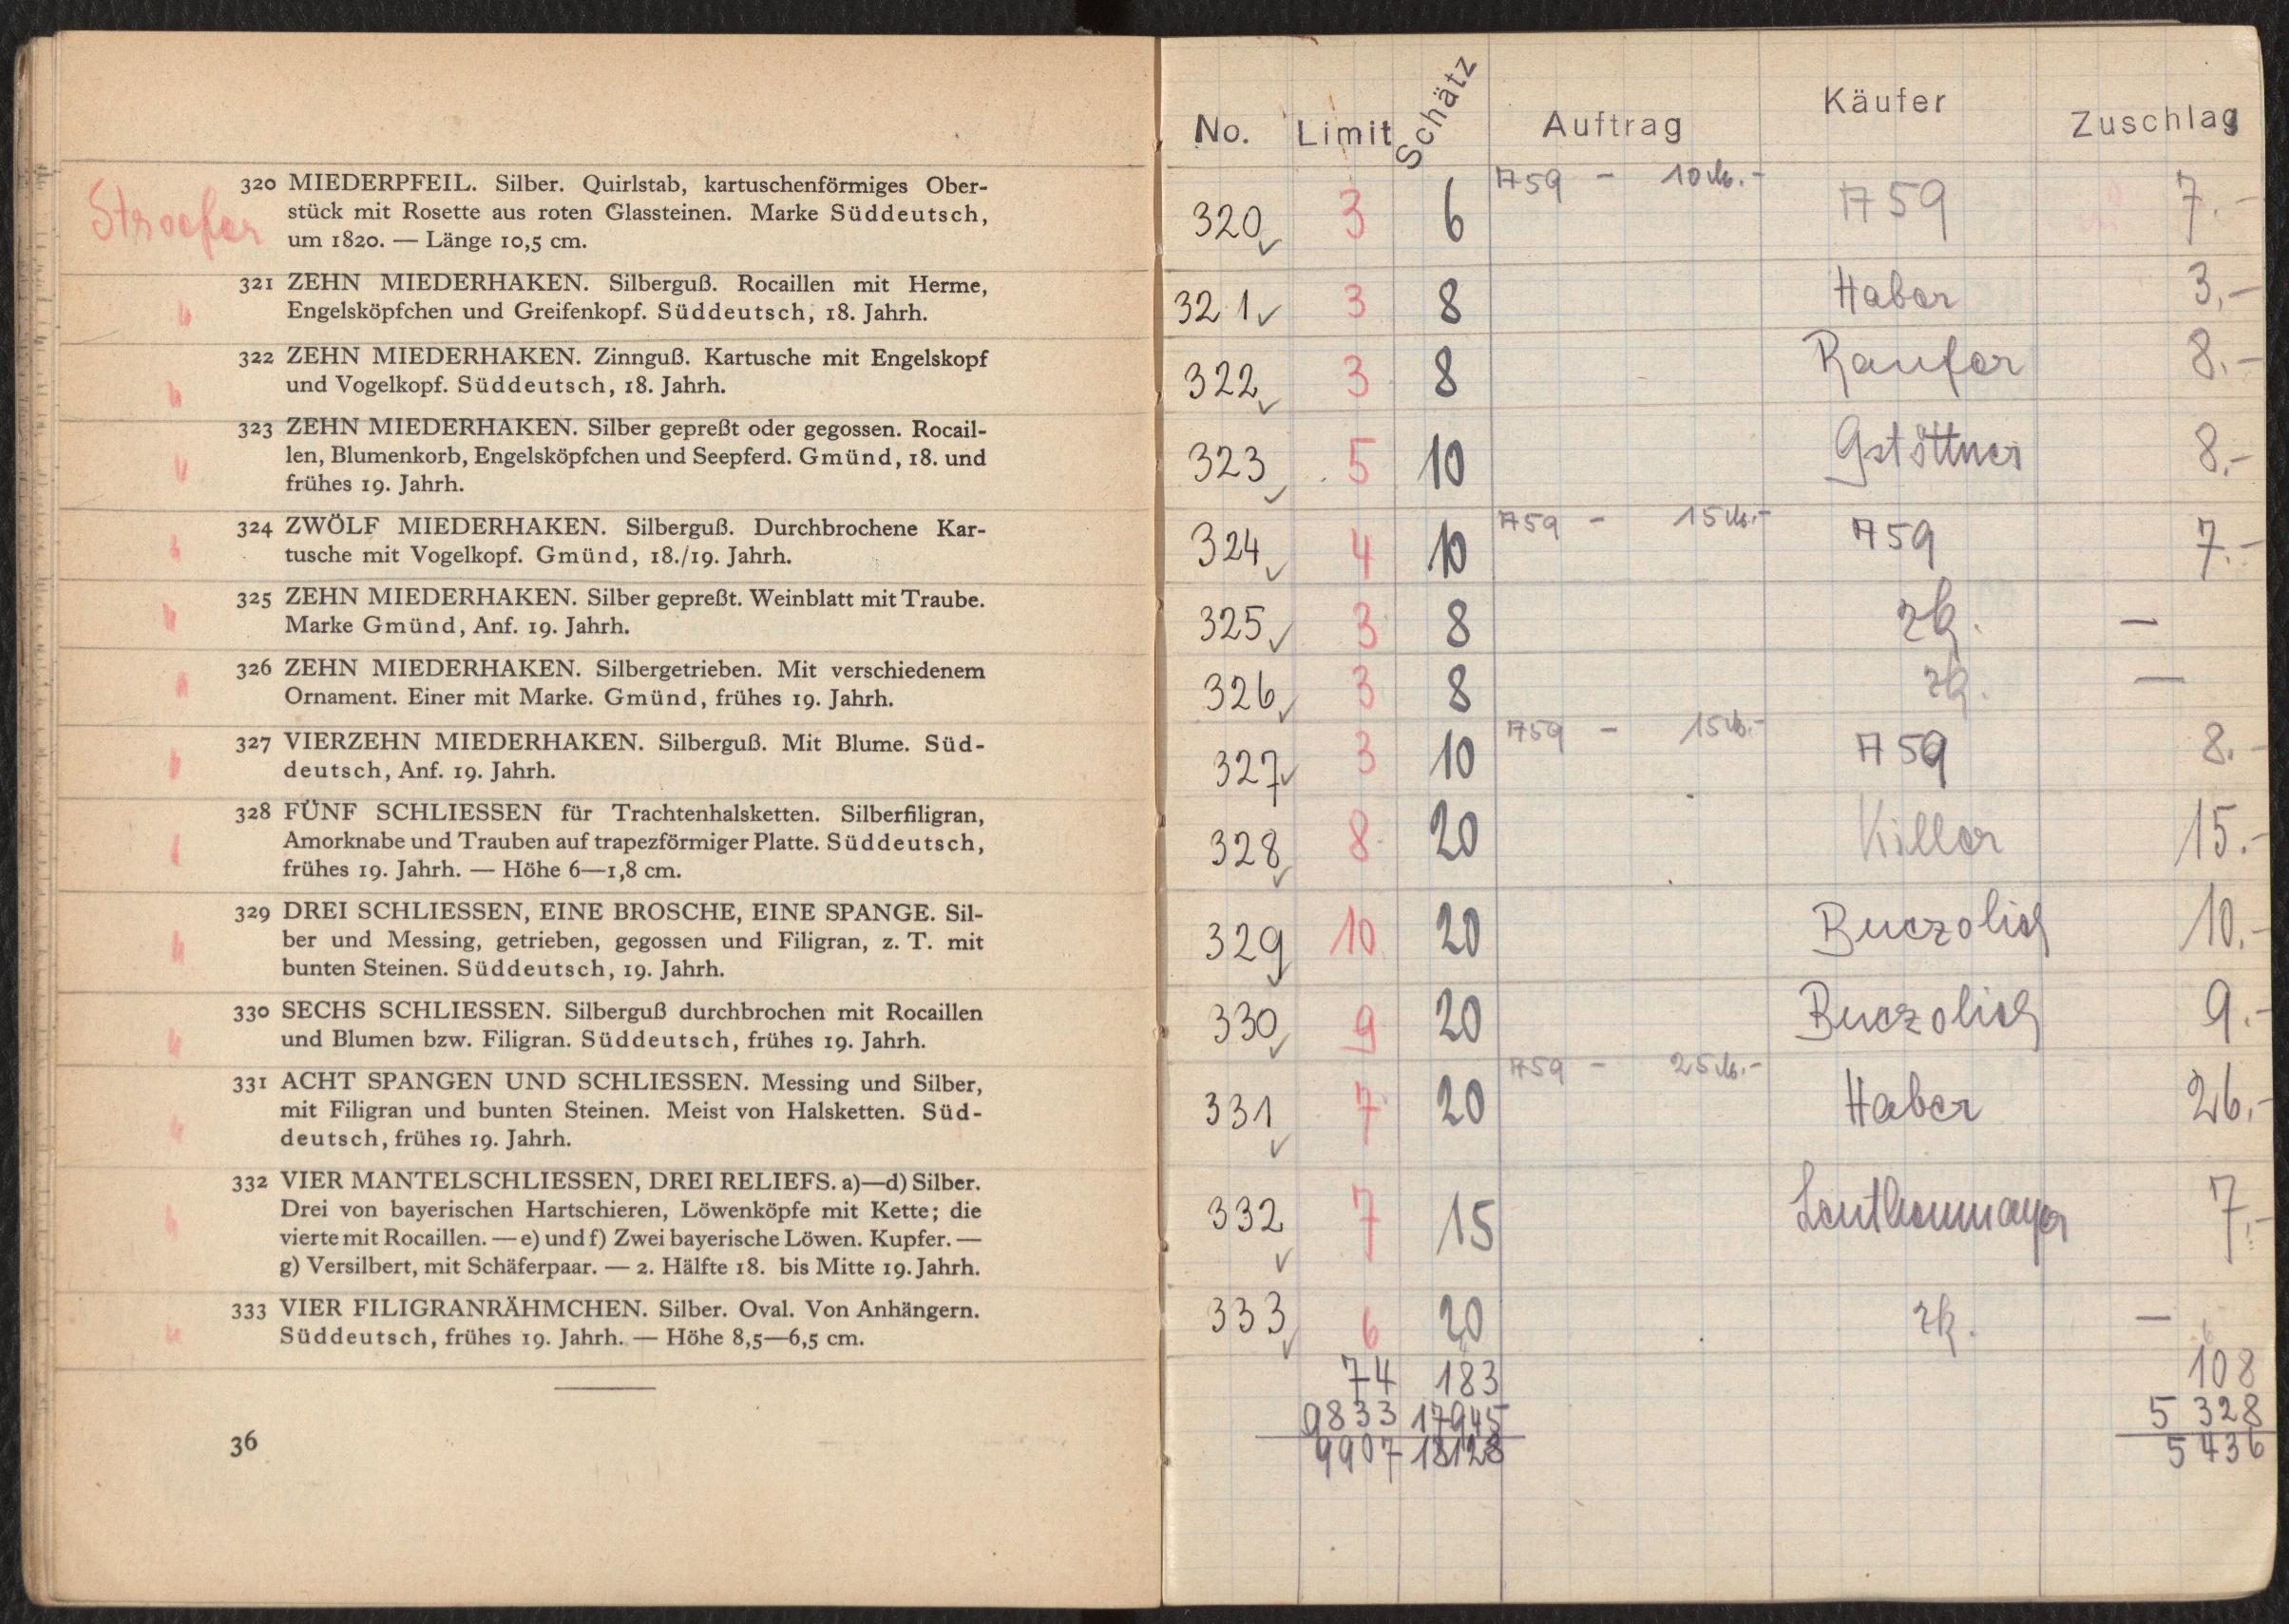 320 MIEDERPFEIL. Silber. Quirlstab, kartuschenförmiges Ober-
Stroefer
stück mit Rosette aus roten Glassteinen. Marke Süddeutsch,
um 1820. — Länge 10,5 cm.
321 ZEHN MIEDERHAKEN. Silberguß. Rocaillen mit Herme,
"
Engelsköpfchen und Greifenkopf. Süddeutsch, 18. Jahrh.
322 ZEHN MIEDERHAKEN. Zinnguß. Kartusche mit Engelskopf
"
und Vogelkopf. Süddeutsch, 18. Jahrh.
323 ZEHN MIEDERHAKEN. Silber gepreßt oder gegossen. Rocail-
"
len, Blumenkorb, Engelsköpfchen und Seepferd. Gmünd, 18. und
frühes 19. Jahrh.
324 ZWÖLF MIEDERHAKEN. Silberguß. Durchbrochene Kar-
"
tusche mit Vogelkopf. Gmünd, 18./19. Jahrh.
325 ZEHN MIEDERHAKEN. Silber gepreßt. Weinblatt mit Traube.
"
Marke Gmünd, Anf. 19. Jahrh.
326 ZEHN MIEDERHAKEN. Silbergetrieben. Mit verschiedenem
"
Ornament. Einer mit Marke. Gmünd, frühes 19. Jahrh.
327 VIERZEHN MIEDERHAKEN. Silberguß. Mit Blume. Süd-
"
deutsch, Anf. 19. Jahrh.
328 FÜNF SCHLIESSEN für Trachtenhalsketten. Silberfiligran,
"
Amorknabe und Trauben auf trapezförmiger Platte. Süddeutsch,
frühes 19. Jahrh. — Höhe 6—1,8 cm.
329 DREI SCHLIESSEN, EINE BROSCHE, EINE SPANGE. Sil-
"
ber und Messing, getrieben, gegossen und Filigran, z. T. mit
bunten Steinen. Süddeutsch, 19. Jahrh.
330 SECHS SCHLIESSEN. Silberguß durchbrochen mit Rocaillen
"
und Blumen bzw. Filigran. Süddeutsch, frühes 19. Jahrh.
331 ACHT SPANGEN UND SCHLIESSEN. Messing und Silber,
"
mit Filigran und bunten Steinen. Meist von Halsketten. Süd-
deutsch, frühes 19. Jahrh.
332 VIER MANTELSCHLIESSEN, DREI RELIEFS. a)—d) Silber.
"
Drei von bayerischen Hartschieren, Löwenköpfe mit Kette; die
vierte mit Rocaillen. — e) und f) Zwei bayerische Löwen. Kupfer. —
g) Versilbert, mit Schäferpaar. — 2. Hälfte 18. bis Mitte 19. Jahrh.
333 VIER FILIGRANRÄHMCHEN. Silber. Oval. Von Anhängern.
"
Süddeutsch, frühes 19. Jahrh. — Höhe 8,5—6,5 cm.
36
No. Limit Schätz Auftrag Käufer Zuschlag
320 ✓ 3 6 A59 - 10 M.- A59 7.-
321 ✓ 3 8 Haber 3,-
322 ✓ 3 8 Raufer 8.-
323 ✓ 5 10 Gstöttner 8.-
324 ✓ 4 10 A59 - 15 M.- A59 7.-
325 ✓ 3 8 zk. —
326 ✓ 3 8 zk. —
327 ✓ 3 10 A59 - 15 M.- A59 8.-
328 ✓ 8 20 Killer 15.-
329 ✓ 10 20 Buczolich 10.-
330 ✓ 9 20 Buczolich 9.-
331 ✓ 7 20 A59 - 25 M.- Haber 26.-
332 ✓ 7 15 Leuthenmayer 7.-
333 ✓ 6 20 zk. —
74 183 108
9833 17945 5 328
9907 18128 5 436